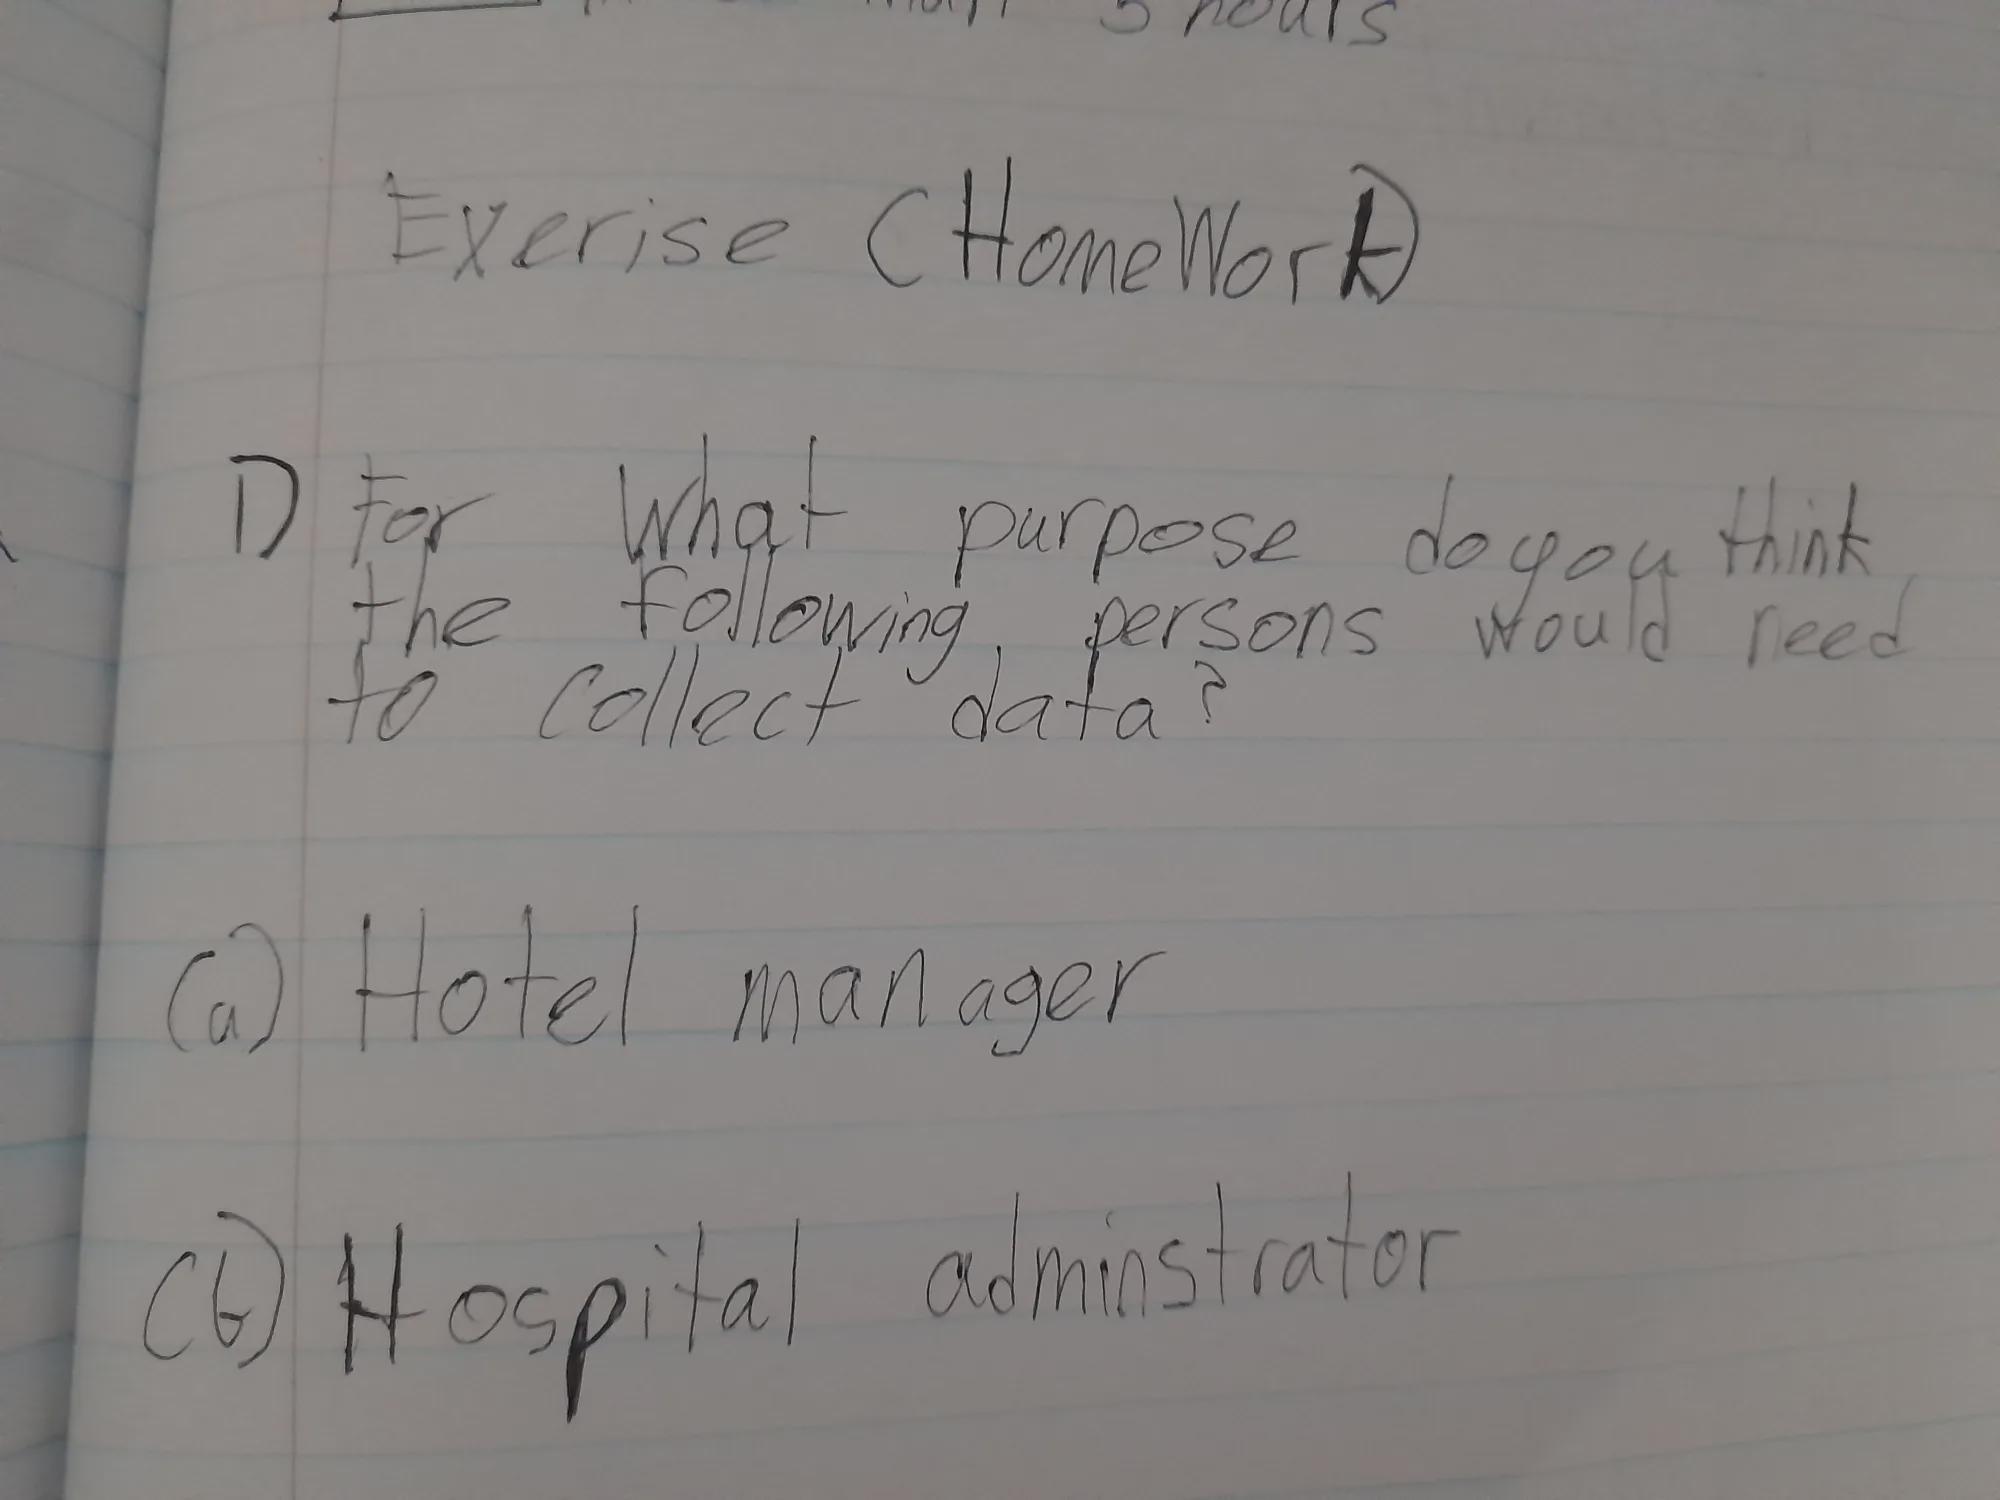 5 hours
Exerise (HomeWork)
1) For what purpose do you think
the following persons would need
to collect data?
(a) Hotel manager
(b) Hospital adminstrator